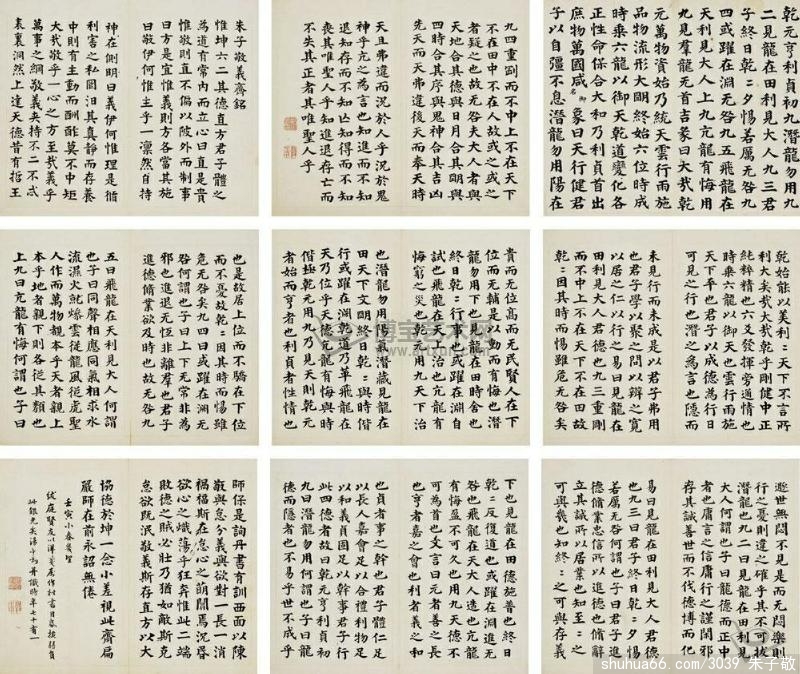 乾元亨利貞初九潛龍勿用九
二見龍在田利見大人九三君
子終日乾=夕惕若厲无咎九
四或躍在淵无咎九五飛龍在
天利見大人上九亢龍有悔用
九見羣龍无首吉彖曰大哉乾
元萬物資始乃統天雲行雨施
品物流形大明終始六位時成
時乘六龍以御天乾道變化各
正性命保合大和乃利貞首出
庶物萬國咸象曰天行健君
子以自彊不息潛龍勿用陽在
下也見龍在田德施普也終日
乾=反復道也或躍在淵進无
咎也飛龍在天大人造也亢龍
有悔盈不可久也用九天德不
可為首也文言曰元者善之長
也亨者嘉之會也利者義之和
也貞者事之幹也君子體仁足
以長人嘉會足以合禮利物足
以和義貞固足以幹事君子行
此四德者故曰乾元亨利貞初
九曰潛龍勿用何謂也子曰龍
德而隱者也不易乎世不成乎
遯世无悶不見是而无悶樂則
行之憂則違之確乎其不可拔
潛龍也九二曰見龍在田利見
大人何謂也子曰龍德而正中
者也庸言之信庸行之謹閑邪
存其誠善世而不伐德博而化
易曰見龍在田利見大人君德
也九三曰君子終日乾=夕惕
若厲无咎何謂也子曰君子進
德脩業忠信所以進德也脩辭
立其誠所以居業也知至=之
可與幾也知終=之可與存義
也是故居上位而不驕在下位
而不憂故乾=因其時而惕雖
危无咎矣九四曰或躍在淵无
咎何謂也子曰上下无常非為
邪也進退无恆非離羣也君子
進德脩業欲及時也故无咎九
五曰飛龍在天利見大人何謂
也子曰同聲相應同氣相求水
流濕火就燥雲從龍風從虎聖
人作而萬物覩本乎天者親上
本乎地者親下則各從其類也
上九曰亢龍有悔何謂也子曰
貴而无位高而无民賢人在下
位而无輔是以動而有悔也潛
龍勿用下也見龍在田時舍也
終日乾=行事也或躍在淵自
試也飛龍在天上治也亢龍有
悔窮之災也乾元用九天下治
也潛龍勿用陽氣潛藏見龍在
田天下文明終日乾=與時偕
行或躍在淵乾道乃革飛龍在
天乃位乎天德亢龍有悔與時
偕極乾元用九乃見天則乾元
者始而亨者也利貞者性情也
乾始能以美利=天下不言所
利大矣哉大哉乾乎剛健中正
純粹精也六爻發揮旁通情也
時乘六龍以御天也雲行雨施
天下平也君子以成德為行日
可見之行也潛之為言也隱而
未見行而未成是以君子弗用
也君子學以聚之問以辯之寬
以居之仁以行之易曰見龍在
田利見大人君德也九三重剛
而不中上不在天下不在田故
乾=因其時而惕雖危无咎矣
九四重剛而不中上不在天下
不在田中不在人故或之或之
者疑之也故无咎夫大人者與
天地合其德與日月合其明與
四時合其序與鬼神合其吉凶
先天而天弗違後天而奉天時
天且弗違而況於人乎況於鬼
神乎亢之為言也知進而不知
退知存而不知亡知得而不知
喪其唯聖人乎知進退存亡而
不失其正者其唯聖人乎
朱子敬義齋銘
惟坤六二其德直方君子體之
為道有常內而立心曰直是貴
惟敬則直不偏以陂外而制事
曰方是宜惟義則方各當其施
曰敬伊何惟主乎一凜然自持
神在側明曰義伊何惟理是循
利害之私罔汨其真靜而存養
中則有主動而酬酢莫不中矩
大哉敬乎一心之方至哉義乎
萬事之綱敬義夾持不二不忒
表裏洞然上達天德昔有哲王
師保是詢丹書有訓西面以陳
敬與怠分義與欲對一長一消
禍福斯在怠心之萌闇焉沉昏
欲心之熾蕩乎狂奔惟此二端
敗德之賊必壯乃猶如敵斯克
怠欲既泯敬義斯存直方以大
協德於坤一念小差視此齋扁
嚴師在前永詔無倦
www.artxun.com
shuhua66.com/3039 朱子敬